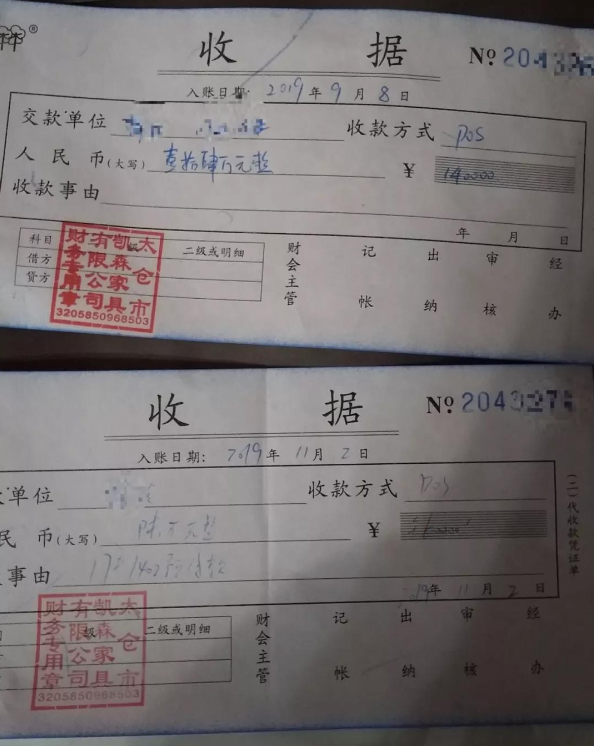 祥®
收 据 № 2043
入账日期: 2019年9月8日
交款单位 收款方式 POS
人民币(大写) 壹拾肆万元整 ¥ 140000
收款事由
年 月 日
科目 级 二级或明细
借方
贷方
财会主管 记帐 出纳 审核 经办
太仓市凯森家具有限公司财务专用章
3205850968503
收 据 № 2043276
入账日期: 2019年11月2日
单位 收款方式 POS
民 币(大写) 陆万元整 ¥
事由
2019年11月2日
(二)代收款凭证单
级 二级或明细
财会主管 记帐 出纳 审核 经办
太仓市凯森家具有限公司财务专用章
3205850968503